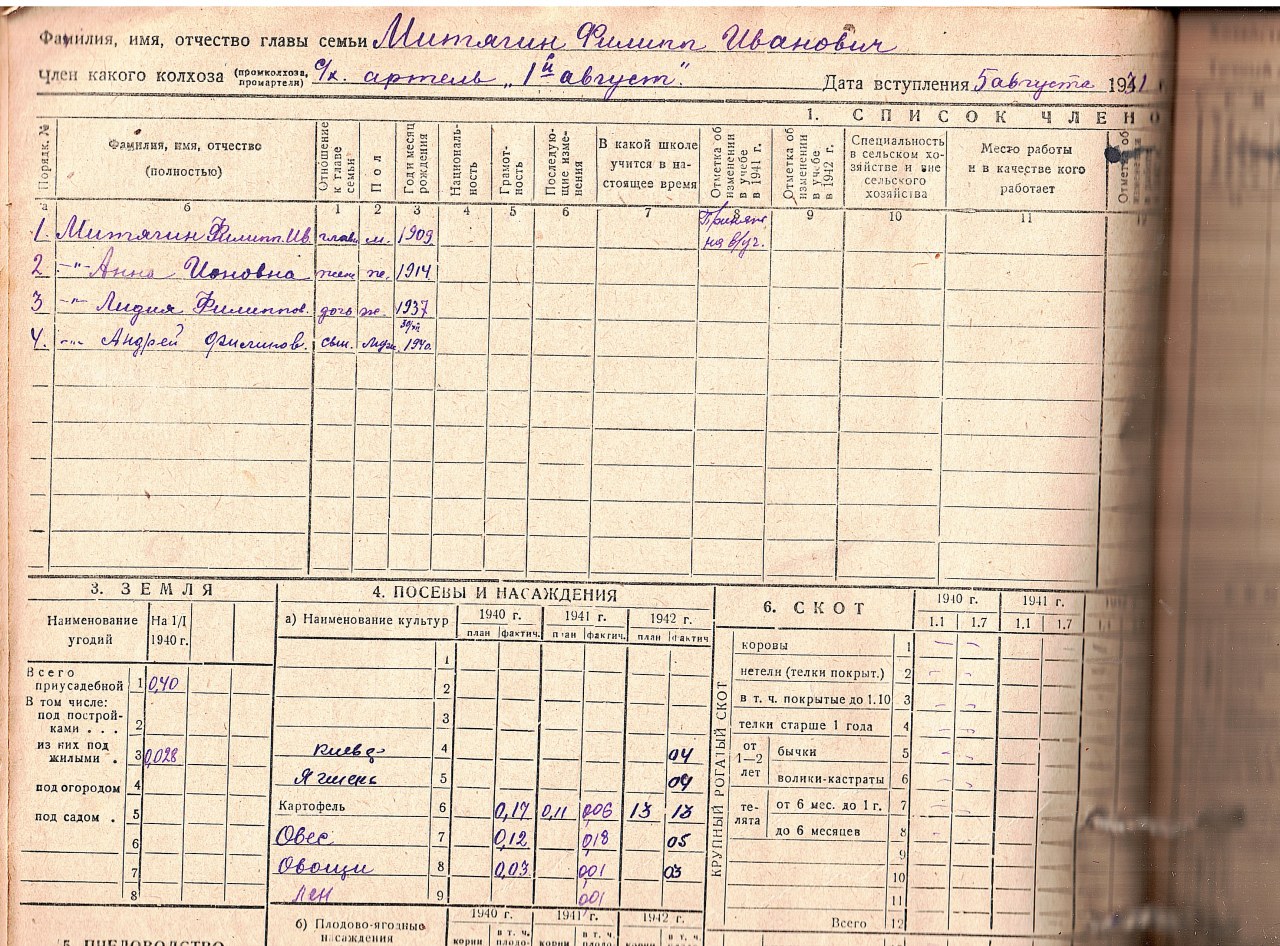 Фамилия, имя, отчество главы семьи Митягин Филипп Иванович
Член какого колхоза (промколхоза, промартели) с/х. артель „1й август".
Дата вступления 5 августа 1931
1. СПИСОК ЧЛЕНО
Порядк. №
Фамилия, имя, отчество (полностью)
Отношение к главе семьи
Пол
Год и месяц рождения
Националь-ность
Грамот-ность
Последую-щие изме-нения
В какой школе учится в на-стоящее время
Отметка об изменении в учебе в 1941 г.
Отметка об изменении в учебе в 1942 г.
Специальность в сельском хо-зяйстве и вне сельского хозяйства
Место работы и в качестве кого работает
Отметка об
а б 1 2 3 4 5 6 7 8 9 10 11
1. Митягин Филипп.Ив. глав. м. 1909
на в/уч.
2 -"- Анна Ионовна жен же. 1914
3 -"- Лидия Филиппов. дочь же 1937
4. -"- Андрей Филипов. сын. 30/XII 1940.
3. ЗЕМЛЯ
Наименование угодий
На 1/I 1940 г.
Всего приусадебной 1 0,40
В том числе:
под построй-ками . . . 2
из них под жилыми . 3 0,028
под огородом 4
под садом . 5
6
7
8
5. ПЧЕЛОВОДСТВО
4. ПОСЕВЫ И НАСАЖДЕНИЯ
а) Наименование культур
1940 г. 1941 г. 1942 г.
план фактич. план фактич. план фактич
1
2
3
4 04
Ячмень 5 04
Картофель 6 0,17 0,11 006 13 13
Овес 7 0,12 018 05
Овощи 8 0,03 001 03
Лен 9 001
б) Плодово-ягодные насаждения
1940 г. 1941 г. 1942 г.
корни в т. ч. плодо- корни в т. ч. плодо- корни в т. ч. плодо-
6. СКОТ
1940 г. 1941 г.
1.1 1.7 1,1 1.7 1.1
КРУПНЫЙ РОГАТЫЙ СКОТ
коровы 1 - -
нетели (телки покрыт.) 2 - -
в т. ч. покрытые до 1.10 3 - -
телки старше 1 года 4 - -
от 1—2 лет
бычки 5 - -
волики-кастраты 6 - -
те-лята
от 6 мес. до 1 г. 7 - -
до 6 месяцев 8 -
9
10
11
Всего 12